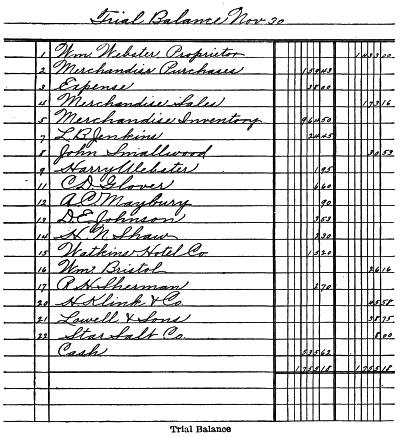 Trial Balance Nov 30
1 Wm. Webster, Proprietor 1433 00
2 Merchandise Purchases 159 43
3 Expense 38 00
4 Merchandise Sales 173 16
5 Merchandise Inventory 964 50
7 L.B. Jenkins 24 45
8 John Smallwood 30 53
9 Harry Webster 1 95
11 C.D. Glover 6 60
12 A.C. Maybury 90
13 D.E. Johnson 3 53
14 H.N. Shaw 2 30
15 Watkins Hotel Co. 15 20
16 Wm. Bristol 26 16
17 P.H. Sherman 2 70
20 H. Klink & Co. 45 58
21 Lowell & Sons 38 75
22 Star Salt Co. 8 00
Cash 535 62
1755 18 1755 18
Trial Balance